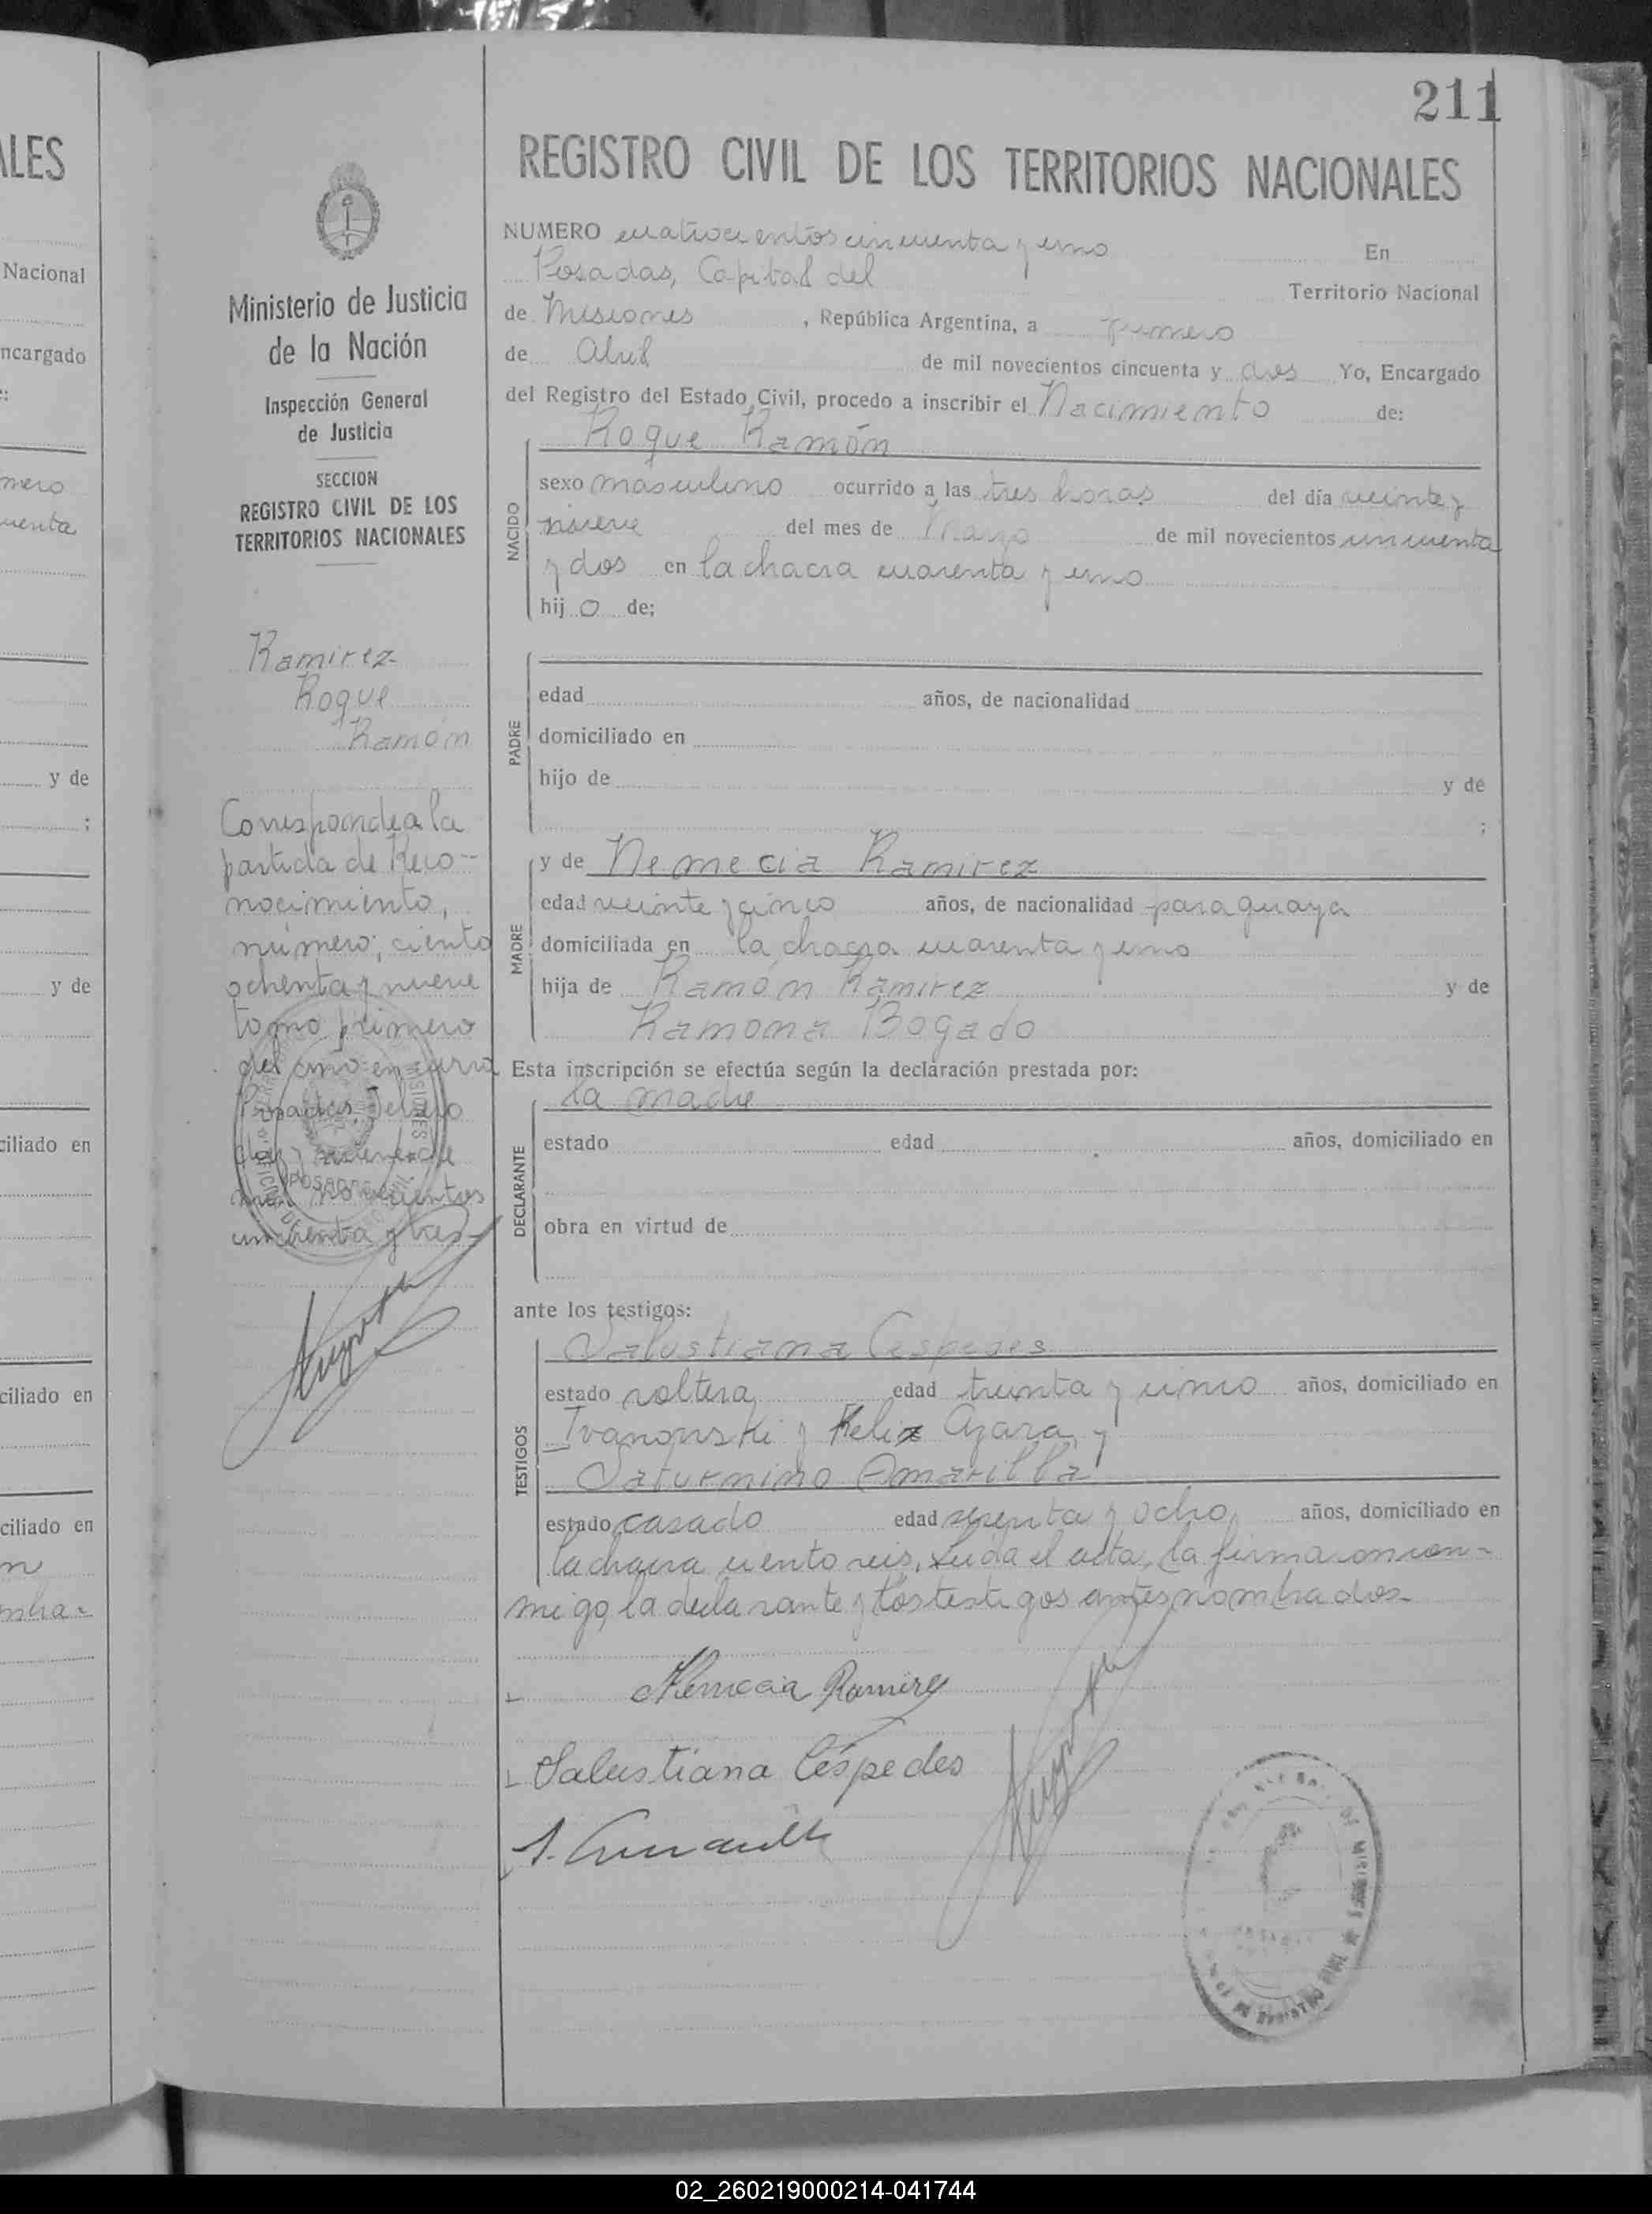 211
REGISTRO CIVIL DE LOS TERRITORIOS NACIONALES
NUMERO cuatrocientos cincuenta y uno En
Posadas, Capital del Territorio Nacional
de Misiones, República Argentina, a primero
de Abril de mil novecientos cincuenta y dos Yo, Encargado
del Registro del Estado Civil, procedo a inscribir el Nacimiento de:
Roque Ramón
NACIDO
sexo masculino ocurrido a las tres horas del día veinte y
nueve del mes de Marzo de mil novecientos cincuenta
y dos en la chacra cuarenta y uno
hijo de;
PADRE
edad años, de nacionalidad
domiciliado en
hijo de y de
;
MADRE
y de Nemecia Ramirez
edad veinte y cinco años, de nacionalidad paraguaya
domiciliada en la chacra cuarenta y uno
hija de Ramón Ramirez y de
Ramona Bogado
Esta inscripción se efectúa según la declaración prestada por:
la madre
DECLARANTE
estado edad años, domiciliado en
obra en virtud de
ante los testigos:
TESTIGOS
Salustiana Cespedes
estado soltera edad treinta y cinco años, domiciliado en
Ivanowski y Felix Azara y
Saturnino Amarilla
estado casado edad sesenta y ocho años, domiciliado en
la chacra ciento seis. Leida el acta, la firmaron con-
migo, la declarante y los testigos antes nombrados-
Nemecia Ramirez
Salustiana Céspedes
S. Amarilla
Ministerio de Justicia
de la Nación
Inspección General
de Justicia
SECCION
REGISTRO CIVIL DE LOS
TERRITORIOS NACIONALES
Ramirez
Roque
Ramón
Corresponde a la
partida de Reco-
nocimiento,
número; ciento
ochenta y nueve
tomo primero
del año en curso
Posadas, Febrero
mil novecientos
cincuenta y tres-
POSADAS
MISIONES
LES
Nacional
ncargado
:
mero
uenta
y de
;
y de
ciliado en
ciliado en
ciliado en
n
mbra-
02_260219000214-041744